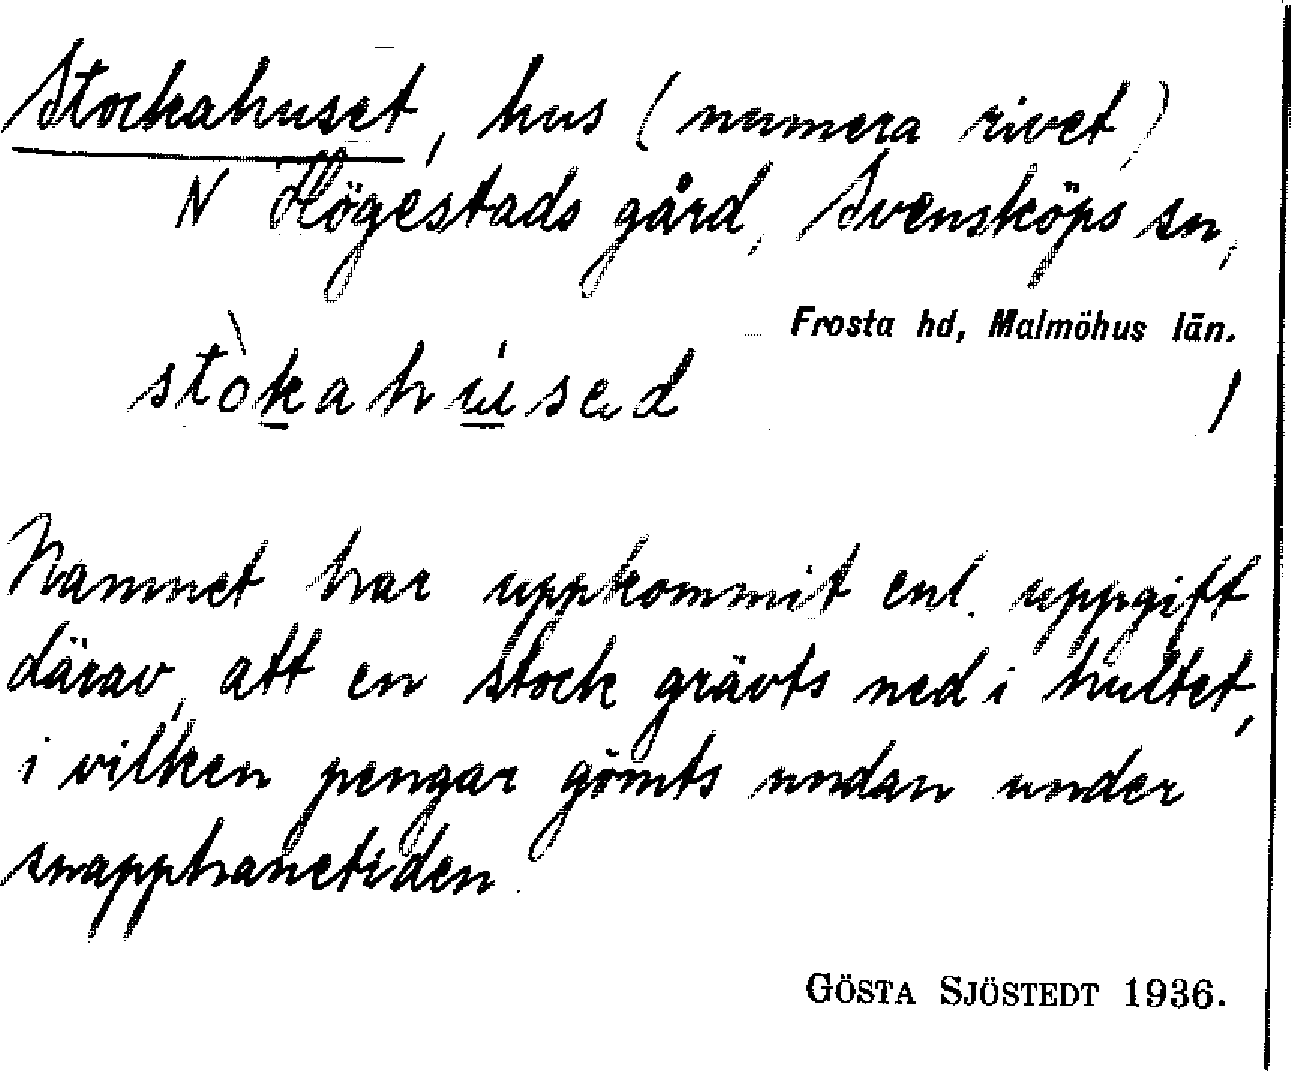 Stockahuset, hus (numera rivet)
N Högestads gård, Svensköps sn,
Frosta hd, Malmöhus län.
stòkahúsed
Namnet har uppkommit enl. uppgift
därav, att en stock grävts ned i hultet,
i vilken pengar gömts undan under
snapphanetiden.
GÖSTA SJÖSTEDT 1936.